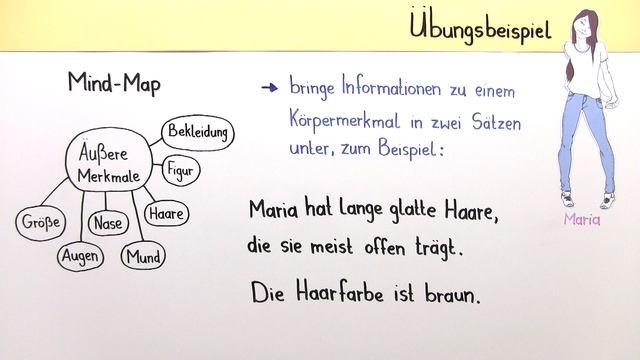 Übungsbeispiel
Mind-Map
Äußere
Merkmale
Bekleidung
Figur
Haare
Mund
Nase
Augen
Größe
→ bringe Informationen zu einem
Körpermerkmal in zwei Sätzen
unter, zum Beispiel:
Maria hat lange glatte Haare,
die sie meist offen trägt.
Die Haarfarbe ist braun.
Maria